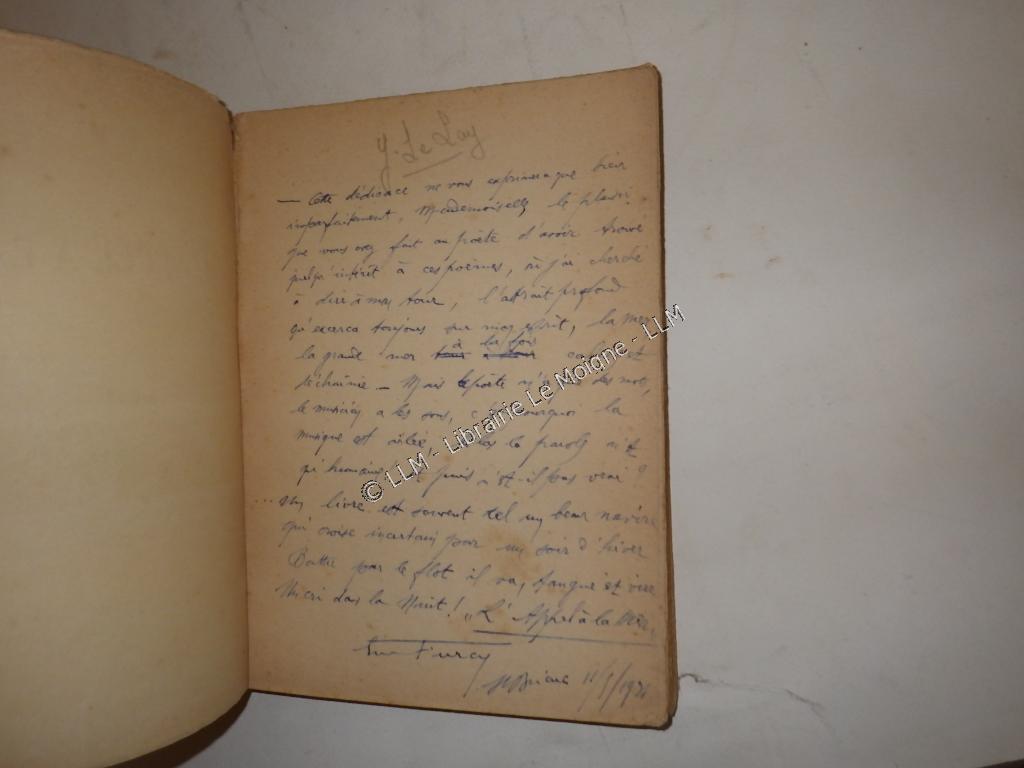 Y. Le Lay
— Cette dédicace ne vous exprimera que bien
imparfaitement, Mademoiselle, le plaisir
que vous avez fait au poète d'avoir trouvé
à ces poèmes, où j'ai cherché
à dire à mon tour, l'attrait profond
qu'exerça toujours sur mon esprit, la mer
la grande mer à la fois
déchaînée — Mais le poète n'a des mots,
le musicien a les sons, pourquoi la
musique est ailée la parole n'est
qu'humaine puis n'est-il pas vrai ?
... Un livre est souvent tel un beau navire
qui croise incertain par un soir d'hiver
Battu par le flot il va, tangue et vire
dans la Nuit ! "L'Appel de la Mer"
Furcy
St Brieuc
© LLM - Librairie Le Moigne - LLM